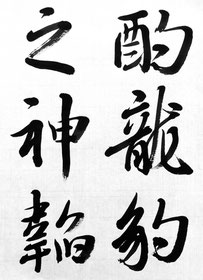 酌龍豹
之神韜